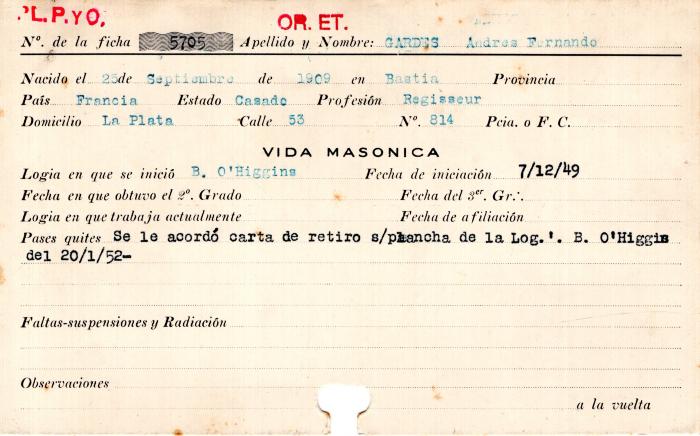 P.L.P.YO. OR. ET.
Nº. de la ficha 5705 Apellido y Nombre: GARDES Andres Fernando
Nacido el 25de Septiembre de 1909 en Bastia Provincia
País Francia Estado Casado Profesión Regisseur
Domicilio La Plata Calle 53 Nº. 814 Pcia. o F. C.
VIDA MASONICA
Logia en que se inició B. O'Higgins Fecha de iniciación 7/12/49
Fecha en que obtuvo el 2º. Grado Fecha del 3er. Gr∴
Logia en que trabaja actualmente Fecha de afiliación
Pases quites Se le acordó carta de retiro s/plancha de la Log.'. B. O'Higgins
del 20/1/52-
Faltas-suspensiones y Radiación
Observaciones
a la vuelta